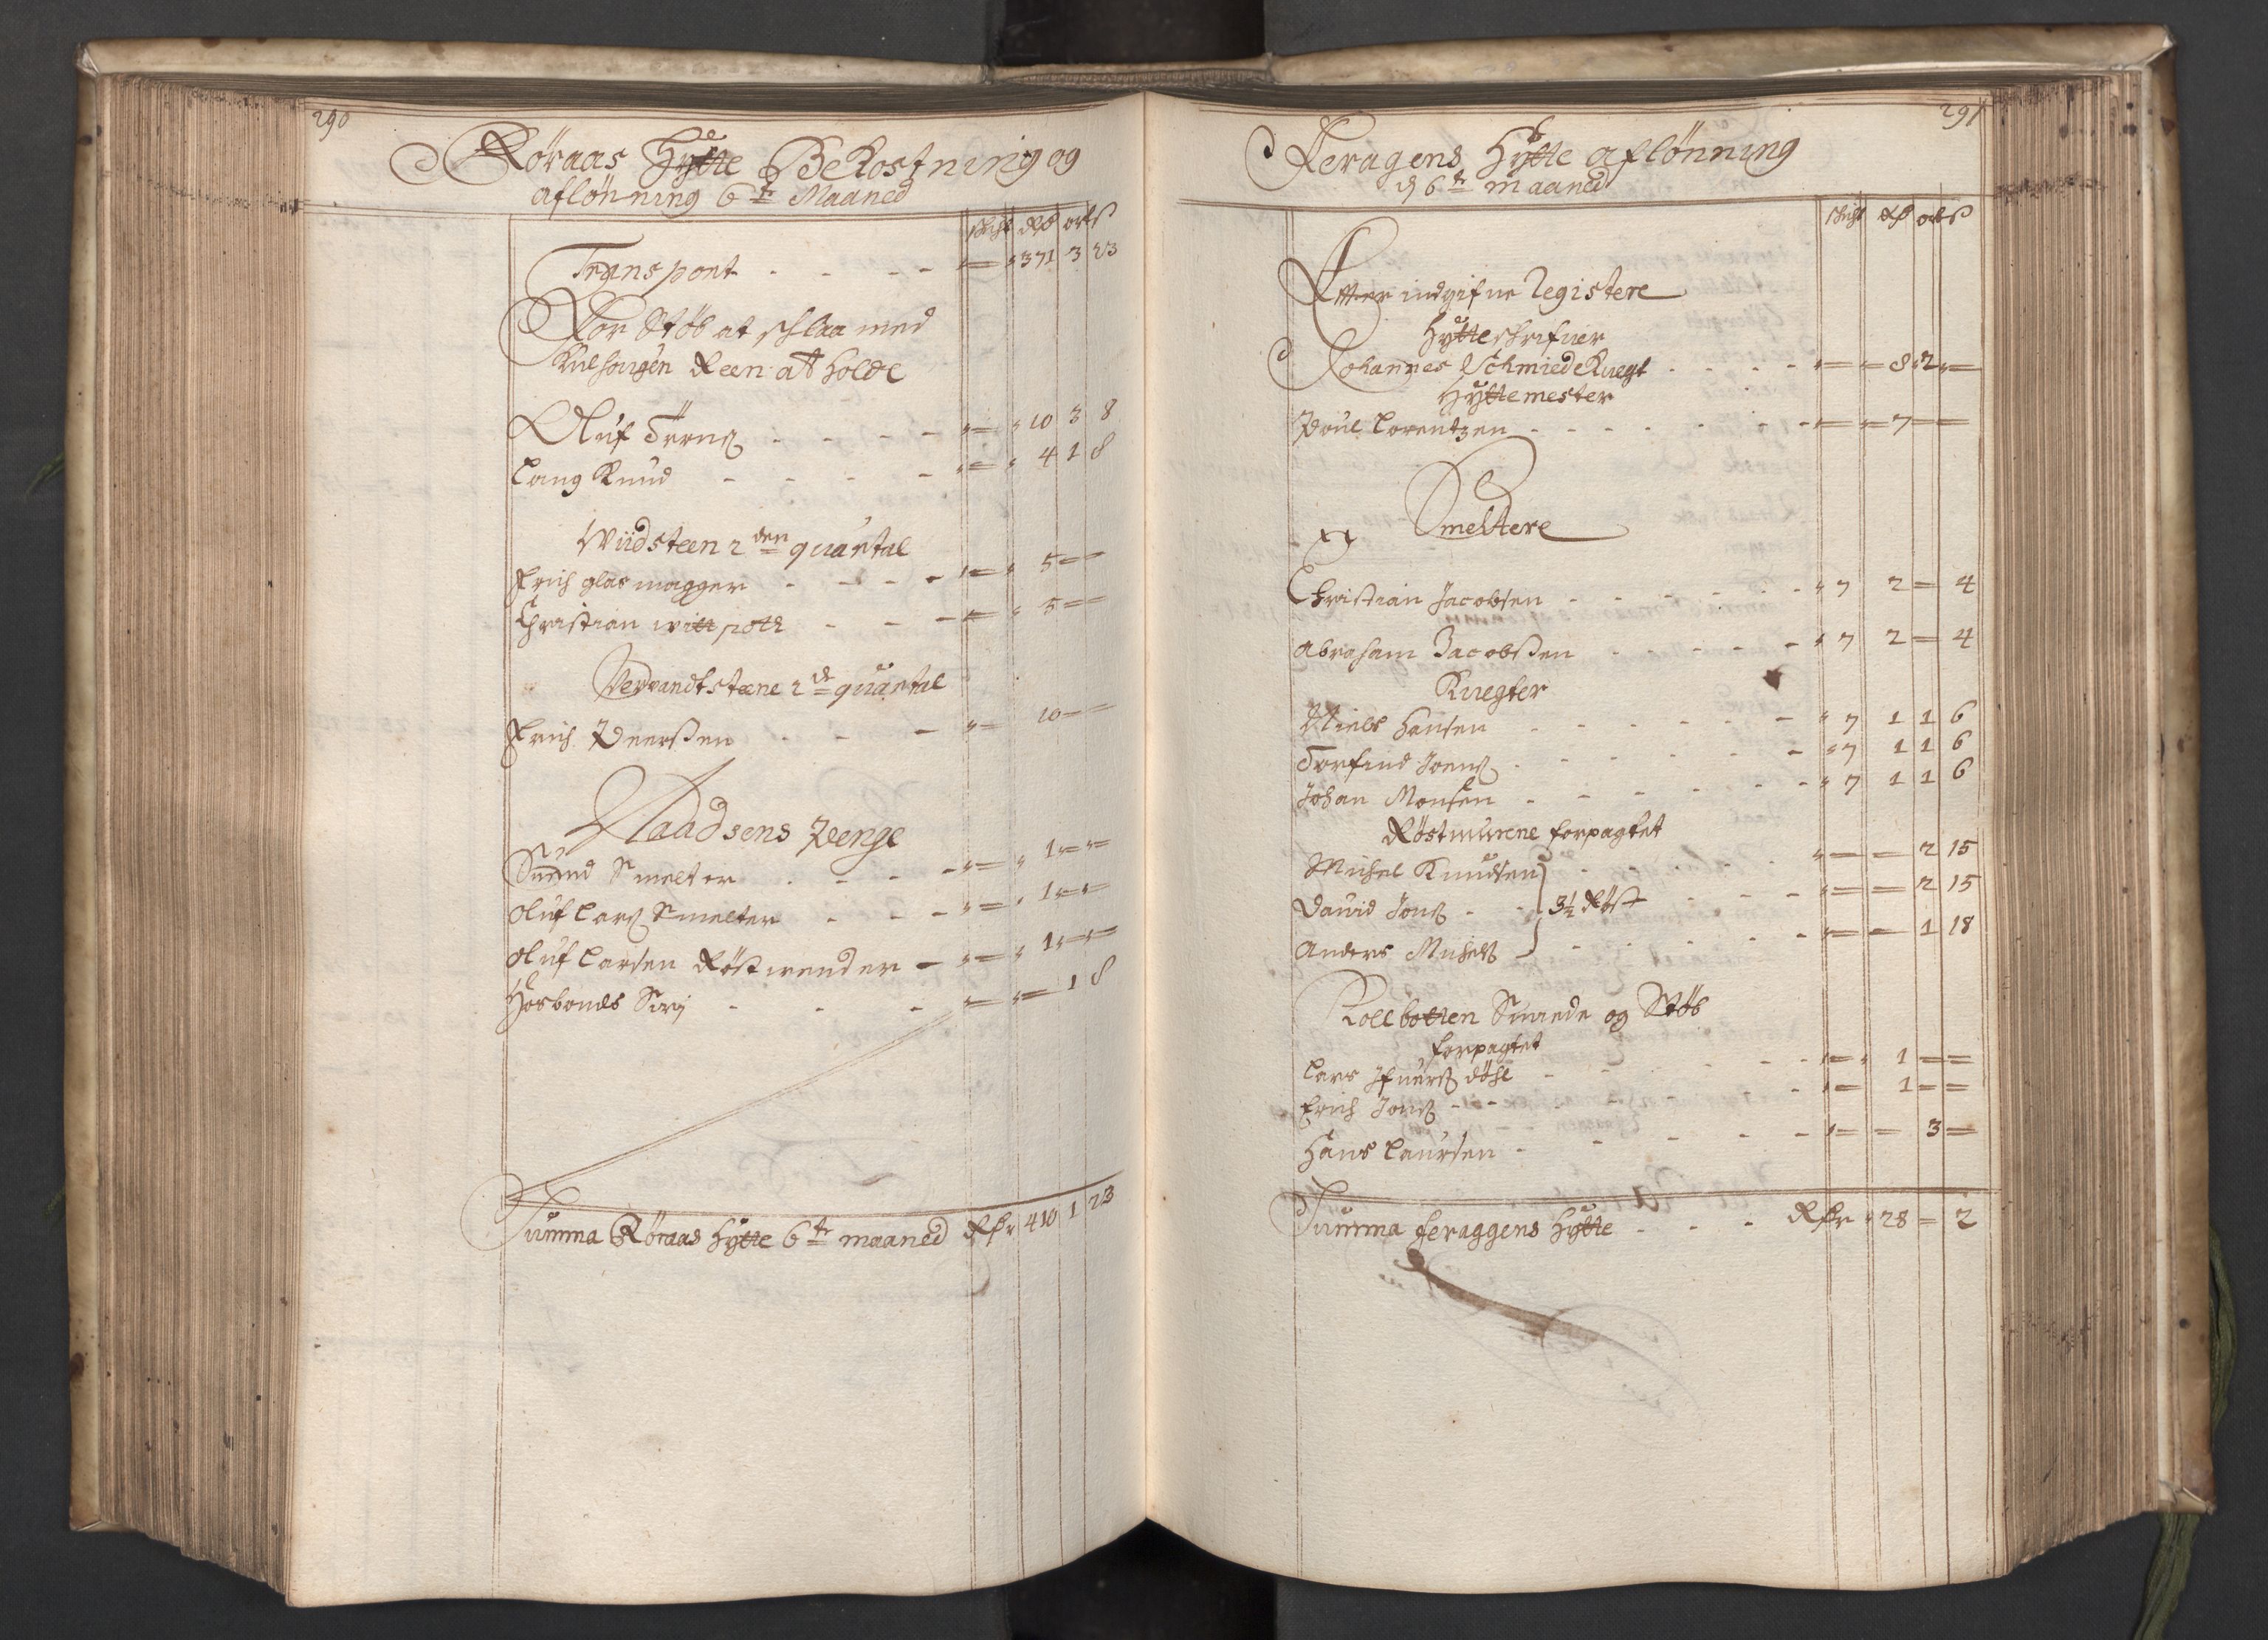 290
Röraas Hytte Bekostning og
aflönning 6te Maaned
schicht Rd ort ß
Transport - - - - 371 3 23
For Støb at schlaa med
Kulhougen Reen at holde
Oluf Törns - - - - 10 3 8
Lang Knud - - - - 4 1 8
Wiidsteen 2den quartal
Erich glasmagger - - - - 5
Christian wittpoth - - - 5
Vervandtsteene 2de quartal
Erich Peersen - - - 10
Naadsens Penge
Suend Smelter - - - - 1
Oluf Lars Smelter - - - 1
Oluf Larsen Röstwender - 1
Hosbonds Siri - - - 1 8
Summa Röraas Hytte 6te maaned Rdr 410 1 23
291
Feragens Hytte aflönning
d 6te maaned
schicht Rd ort ß
Efter indgifne Registere
Hytteschrifuer
Johannes Schmied Knegt - - - - 8 2
Hyttemester
Poul Lorentzen - - - - - - - 7
Smeltere
Christian Jacobsen - - - - - - 7 2 = 4
Abraham Jacobsen - - - - - 7 2 = 4
Knegter
Niels Hansen - - - - - - 7 1 1 6
Torfind Joens - - - - - - 7 1 1 6
Johan Monsen - - - - - - 7 1 1 6
Röstmurene forpagtet
Michel Knudsen - - - - - 2 15
David Jons - - 3½ Röst - - - 2 15
Anders Michels - - - - - 1 18
Kollbotten Smede og Støb
forpagtet
Lars Ifuers döhl - - - - - 1
Erich Jons - - - - - - 1
Hans Laursen - - - - - 3
Summa feraggens Hytte - - - Rdr 28 = 2